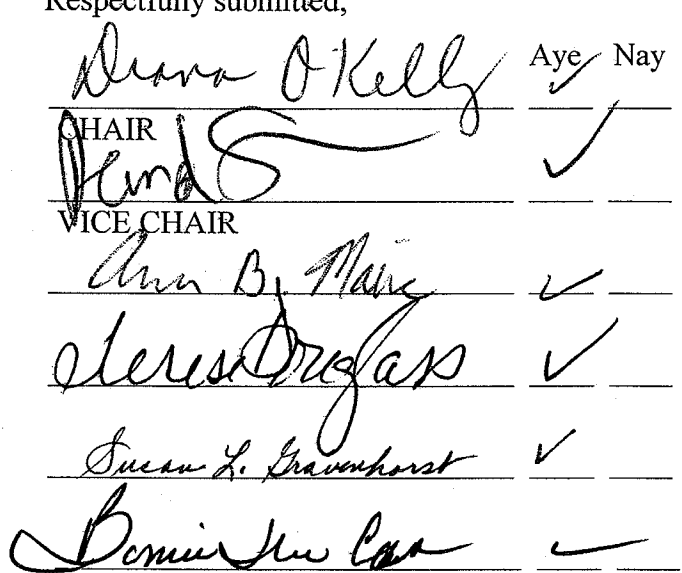 Respectfully submitted,
Diana O'Kelly Aye ✓ Nay
CHAIR
✓
VICE CHAIR
Ann B. Maine ✓
✓
Susan L. Gravenhorst ✓
Bonnie Carter ✓